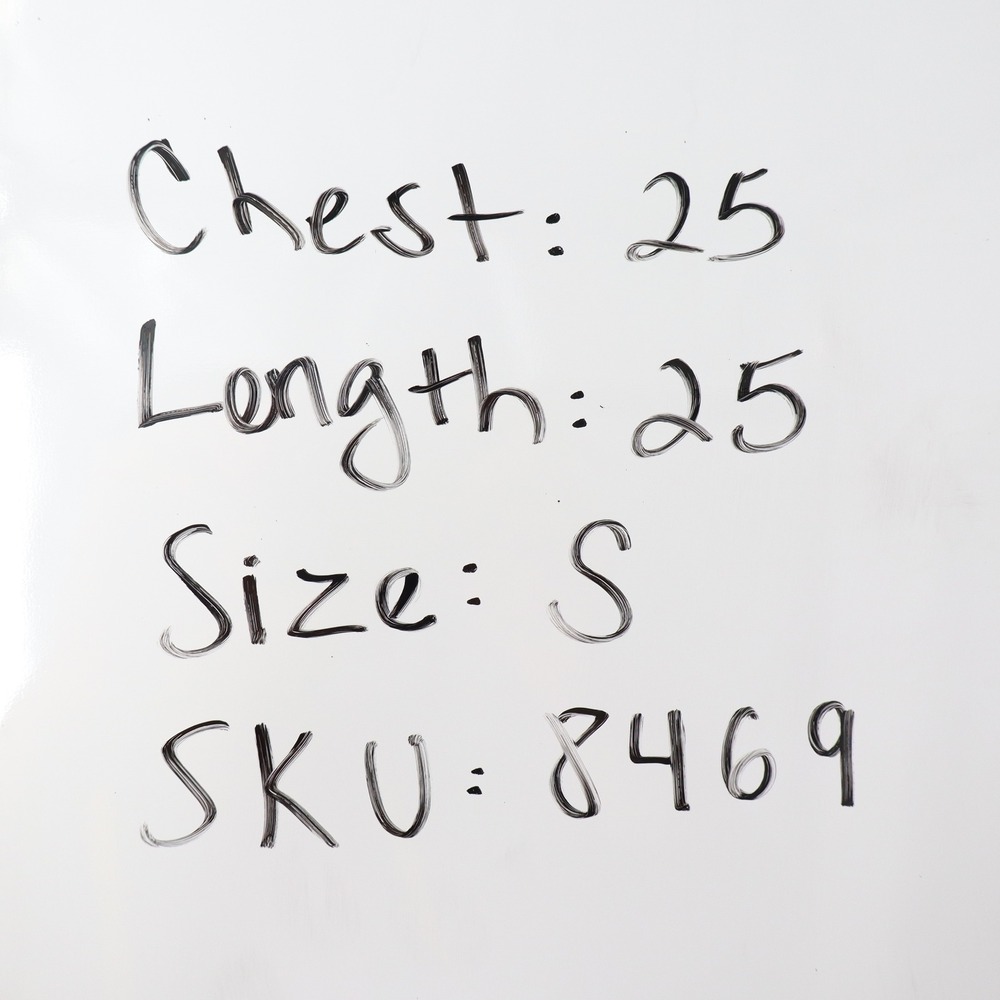 Chest: 25
Length: 25
Size: S
SKU: 8469